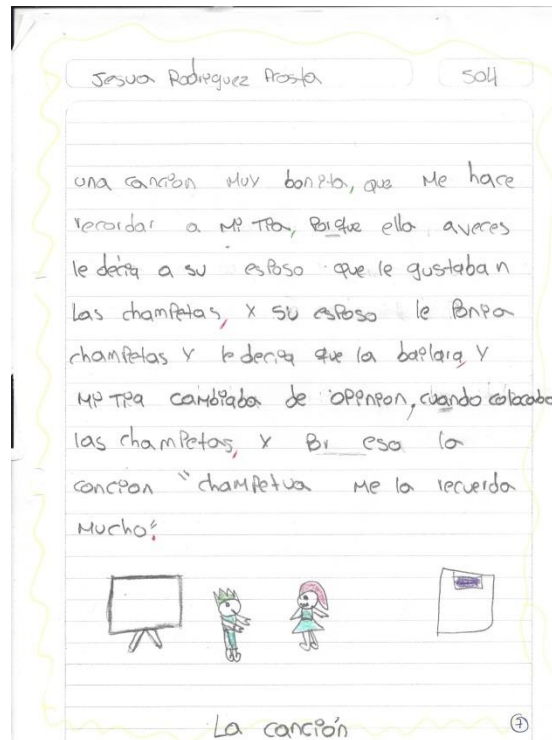 Jesua Rodreguez Acosta 504
una canción muy bonita, que me hace
recordar a mi tia, Porque ella aveces
le decia a su esposo que le gustaban
Las champetas, y su esposo le Ponia
champetas y le decia que la bailara y
mi tia cambiaba de opinion, cuando colocaba
las champetas, y Por eso la
cancion "champetua me la recuerda
mucho".
La canción 7